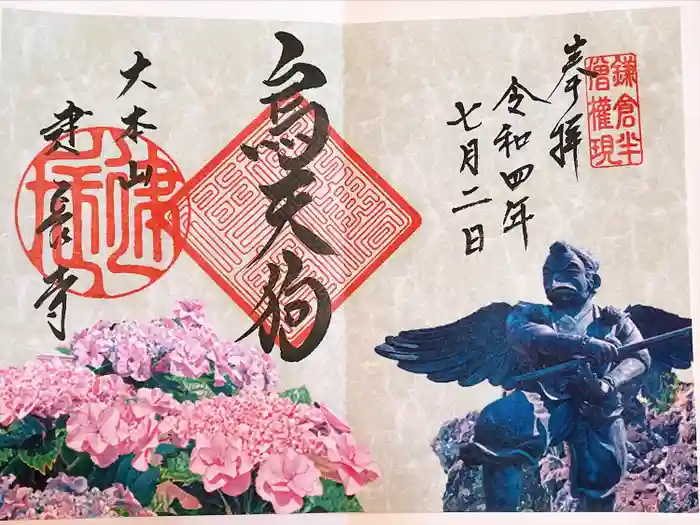 鎌倉半
僧権現
奉拝
令和四年
七月二日
烏天狗
大本山
建長寺